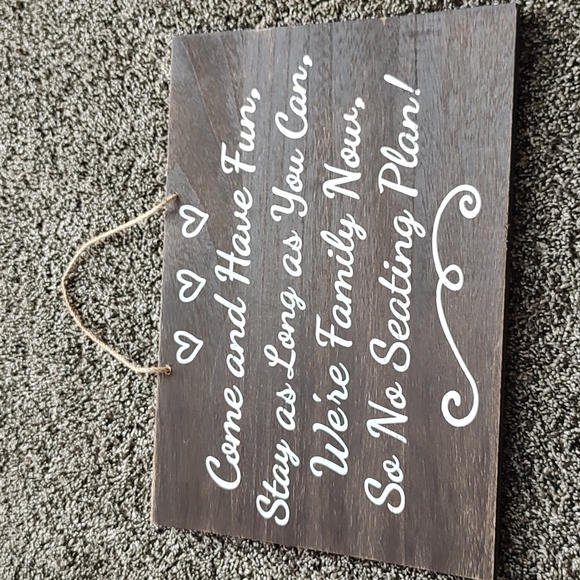 Come and Have Fun,
Stay as Long as You Can,
We're Family Now,
So No Seating Plan!